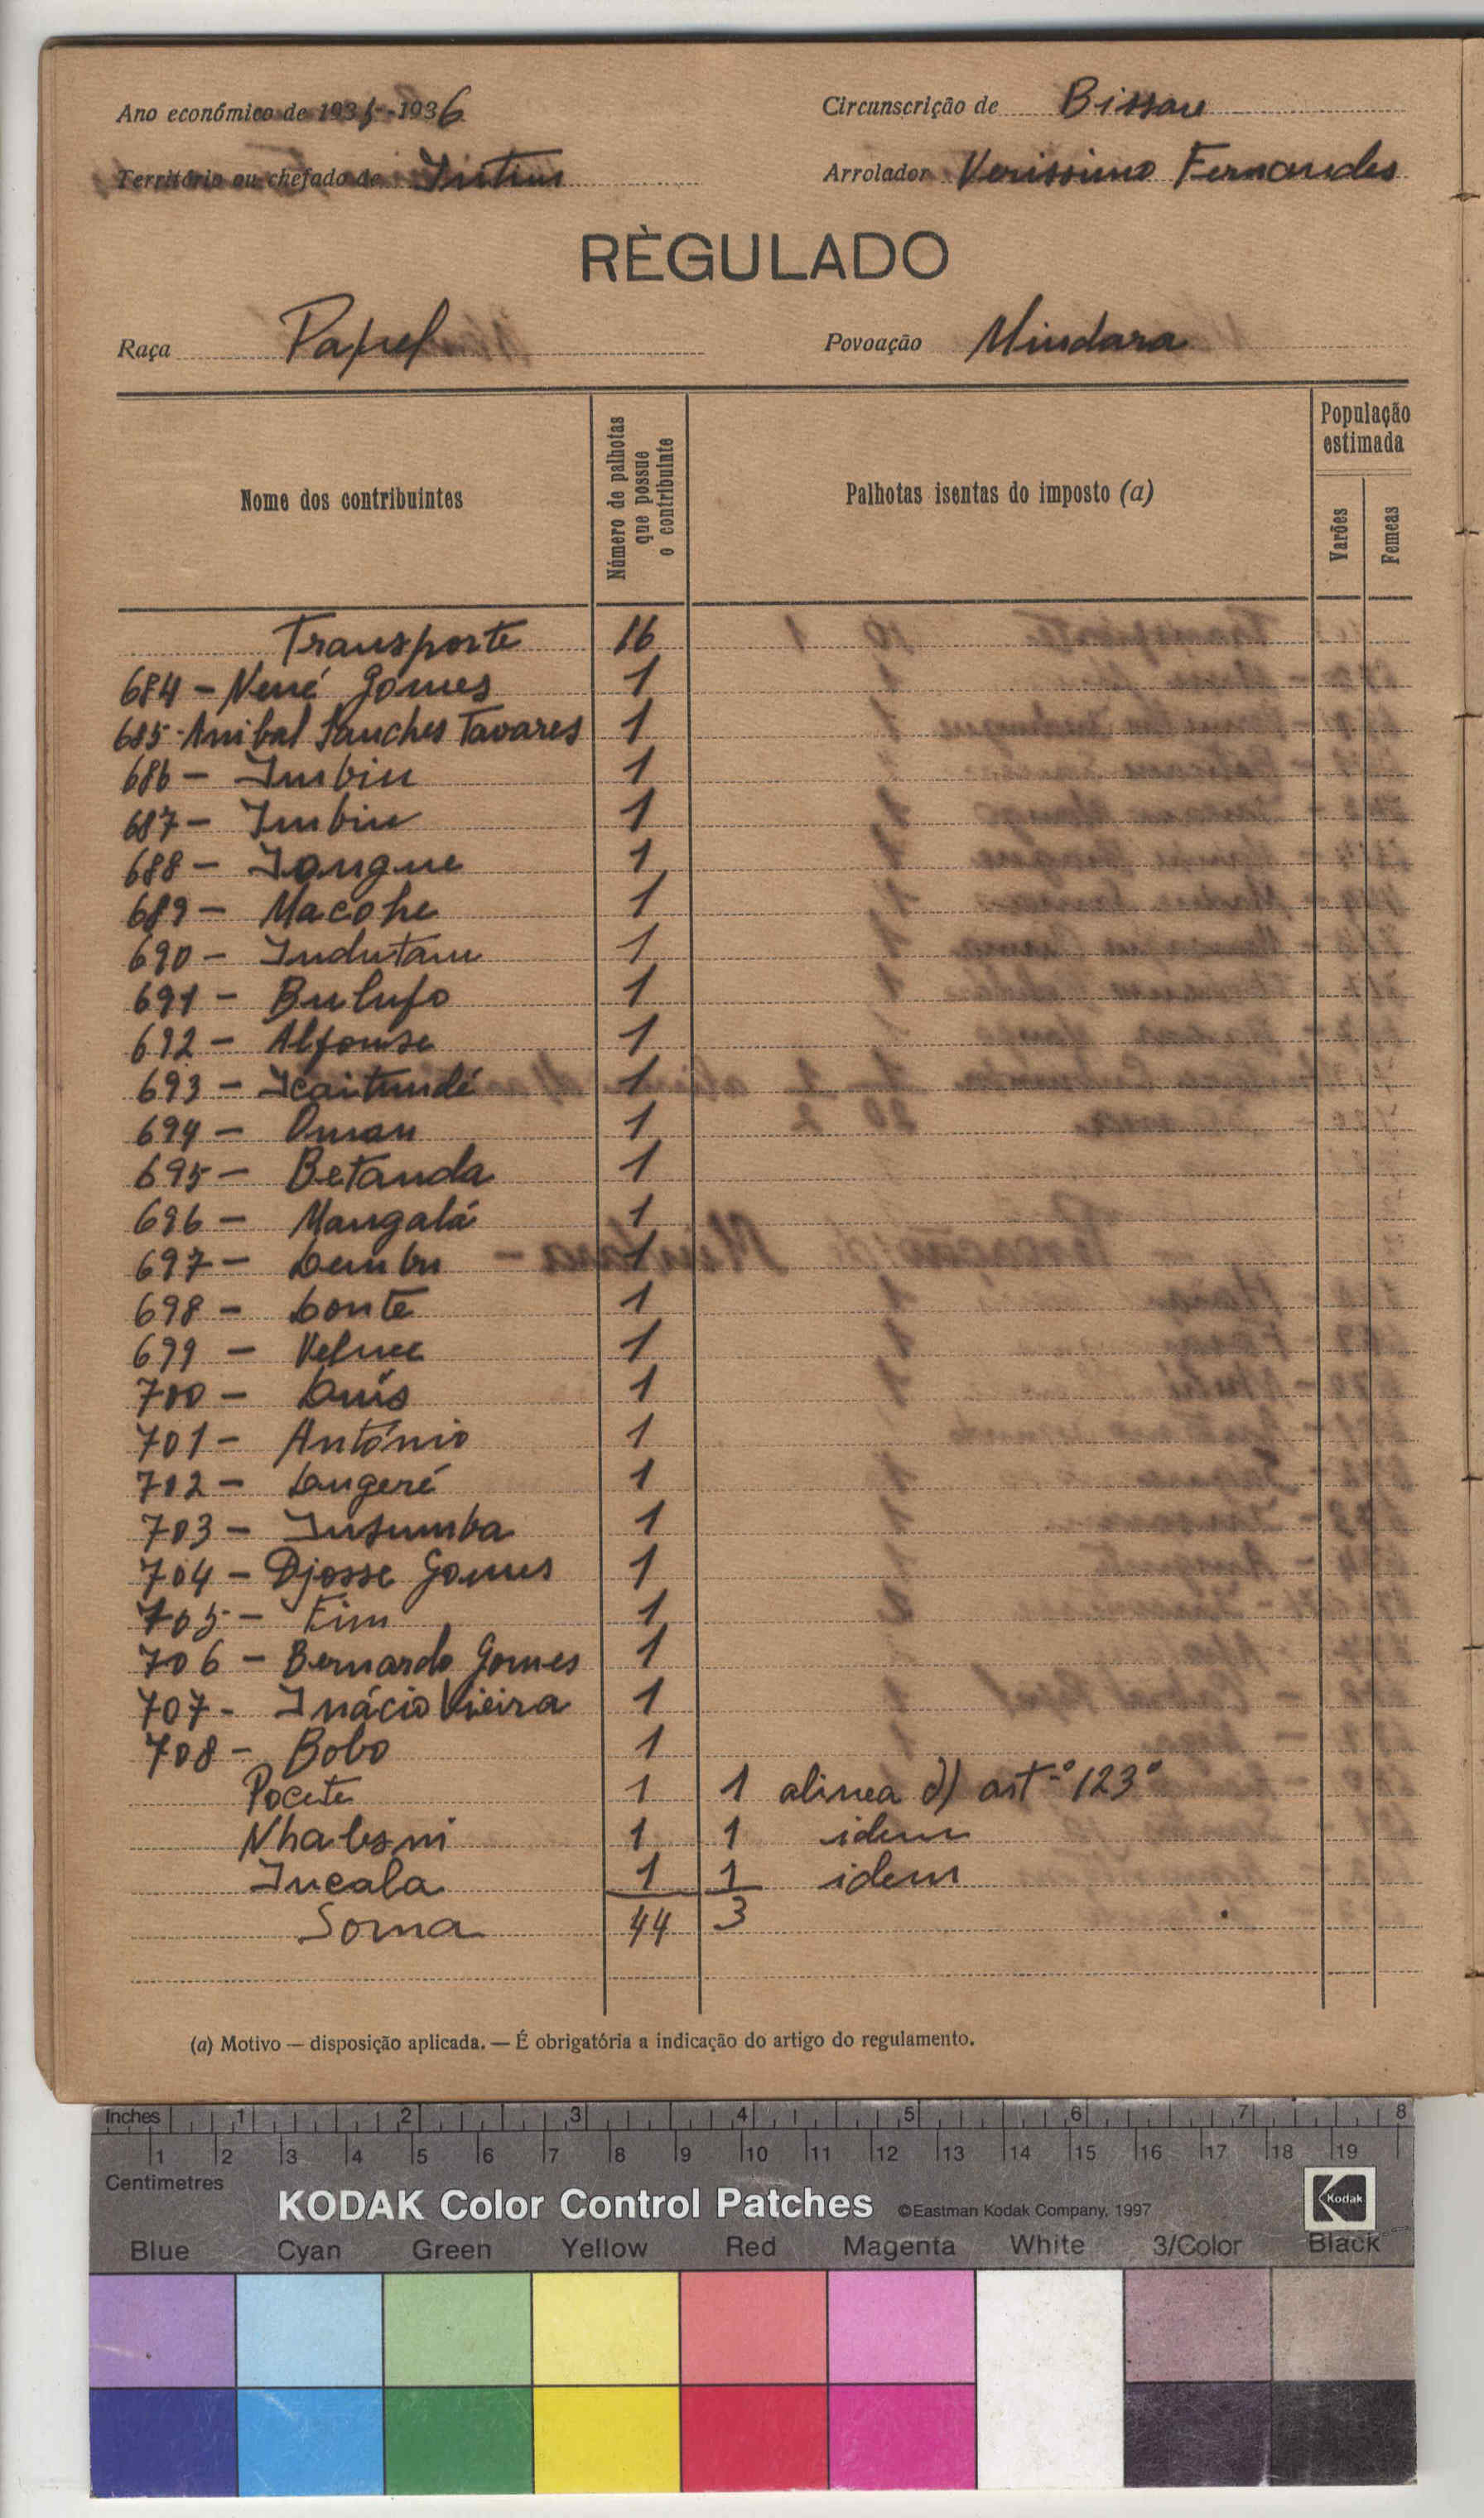 Ano económico de 1935-1936
Circunscrição de Bissau
Território ou chefado de Intim
Arrolador Verissimo Fernandes
RÈGULADO
Raça Papel
Povoação Mindara
Nome dos contribuintes
Número de palhotas
que possue
o contribuinte
Palhotas isentas do imposto (a)
População
estimada
Varões
Femeas
Transporte 16
684 - Nené Gomes 1
685 - Anibal Sanches Tavares 1
686 - Imbin 1
687 - Imbin 1
688 - Iongue 1
689 - Macohe 1
690 - Indutam 1
691 - Bulufo 1
692 - Alfonse 1
693 - Icaitundé 1
694 - Oman 1
695 - Betanda 1
696 - Mangalá 1
697 - Lembu 1
698 - Lonte 1
699 - 1
700 - Luís 1
701 - António 1
702 - Langeré 1
703 - Insumba 1
704 - Djosse Gomes 1
705 - Fim 1
706 - Bernardo Gomes 1
707 - Inácio Vieira 1
708 - Bobo 1
Pocete 1 1 alinea d) artº 123º
1 1 idem
Incala 1 1 idem
Soma 44 3
(a) Motivo — disposição aplicada. — É obrigatória a indicação do artigo do regulamento.
Inches 1 2 3 4 5 6 7 8
1 2 3 4 5 6 7 8 9 10 11 12 13 14 15 16 17 18 19
Centimetres
KODAK Color Control Patches ©Eastman Kodak Company, 1997 Kodak
Blue Cyan Green Yellow Red Magenta White 3/Color Black